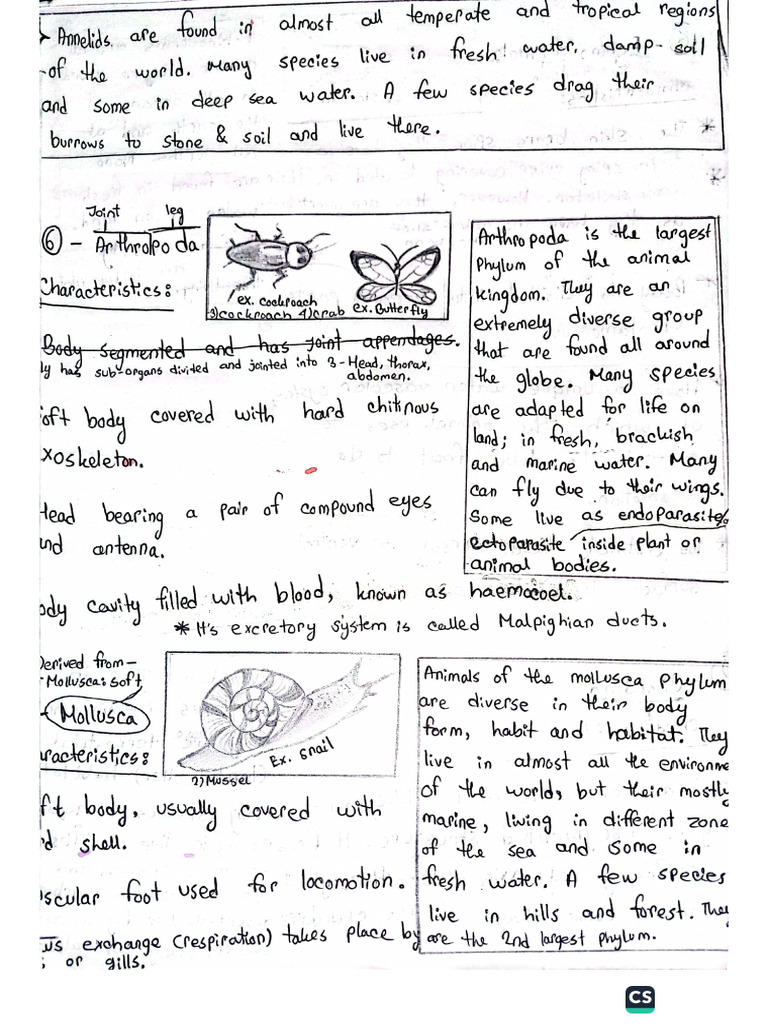 Annelids are found in almost all temperate and tropical regions
of the world. Many species live in fresh water, damp soil
and some in deep sea water. A few species drag their
burrows to stone & soil and live there.
Joint leg
⑥ - Arthropoda
Characteristics:
ex. cockroach
3)cockroach 4)crab
ex. Butterfly
Body segmented and has joint appendages.
ly has sub-organs divided and jointed into 3-Head, thorax,
abdomen.
oft body covered with hard chitinous
xoskeleton.
Head bearing a pair of compound eyes
and antenna.
ody cavity filled with blood, known as haemocoel.
* It's excretory system is called Malpighian ducts.
Arthropoda is the largest
Phylum of the animal
kingdom. They are an
extremely diverse group
that are found all around
the globe. Many species
are adapted for life on
land; in fresh, brackish
and marine water. Many
can fly due to their wings.
Some live as endoparasite/
ectoparasite inside plant or
animal bodies.
Derived from-
Mollusca: soft
Mollusca
aracteristics:
Ex. snail
2)Mussel
ft body, usually covered with
rd shell.
uscular foot used for locomotion.
us exchange (respiration) takes place by
; or gills.
Animals of the mollusca phylum
are diverse in their body
form, habit and habitat. They
live in almost all the environme
of the world, but their mostly
marine, living in different zone
of the sea and some in
fresh water. A few species
live in hills and forest. They
are the 2nd largest phylum.
CS